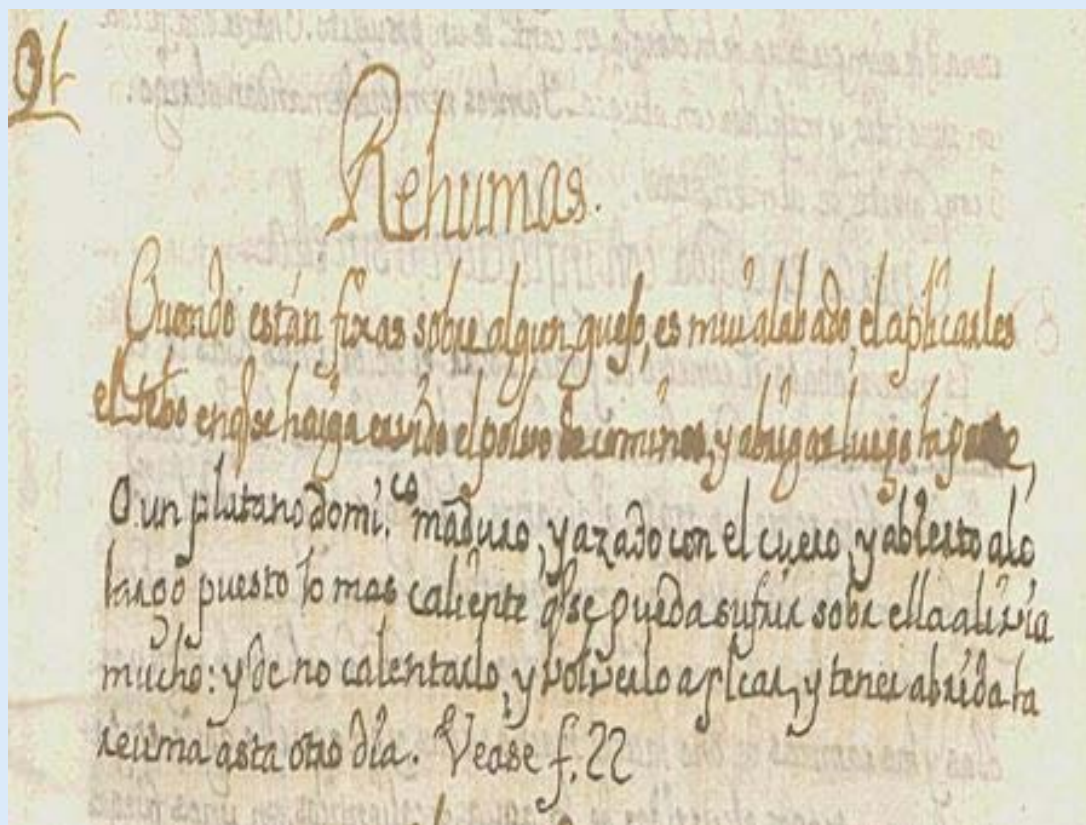 91
Rehumas.
Quando están fixas sobre algun gueso, es mui alabado, el aplicarles
el sebo enqe se haiga el polvo de cominos, y abrigar luego la parte,
O un platano domi.co maduro, y azado con el cuero, y abierto alo
largo puesto lo mas caliente qe se pueda sufrir sobre ella alivia
mucho: y de no calentarlo, y volverlo aplcar, y tener la
reuma asta otro dia. Vease f. 22